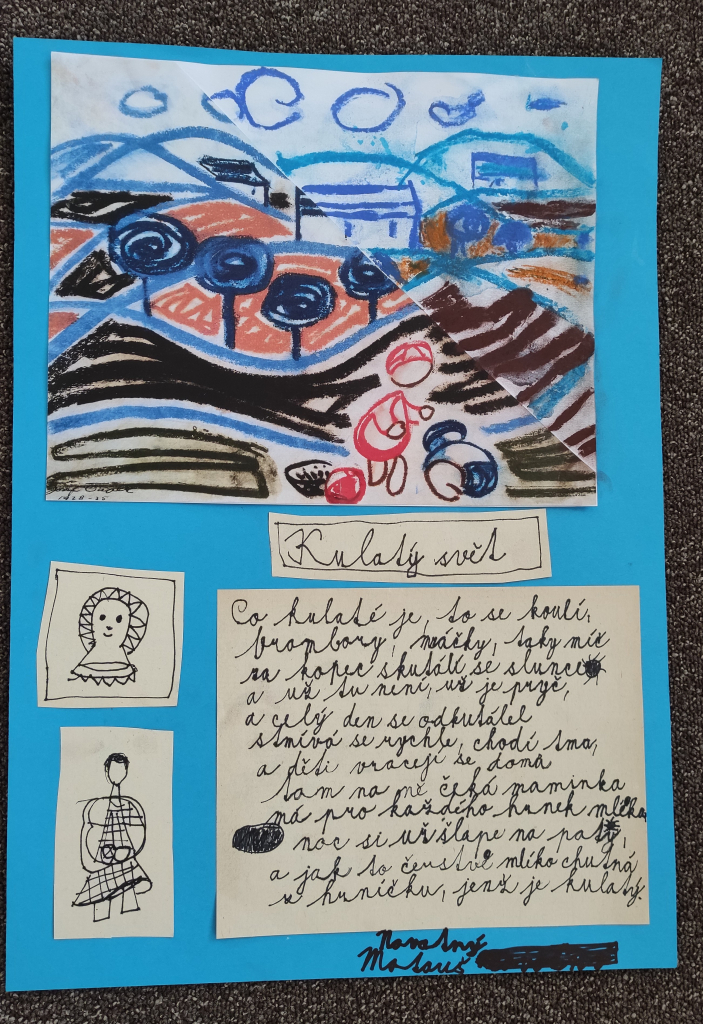 1928-35
Kulatý svět
Co kulaté je, to se koulí,
brambory, máčky, taky míč
za kopec skutálí se slunce
a už tu není, už je pryč,
a celý den se odkutálel
stmívá se rychle, chodí tma,
a děti vracejí se domů
tam na ně čeká maminka
má pro každého hrnek mléka
noc si už šlape na paty,
a jak to čerstvé mlíko chutná
z hrníčku, jenž je kulatý.
Novotný
Matouš